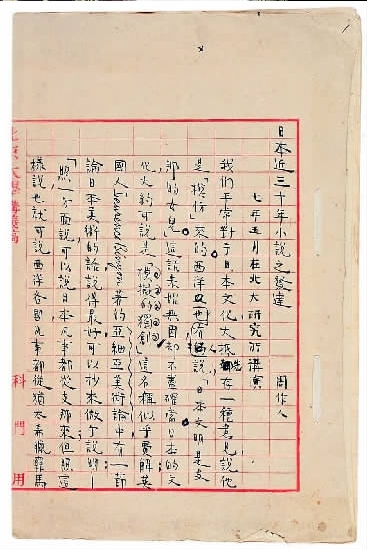 日本近三十年小說之發達　周作人
七年五月在北大研究所講演
我们平常對于日本文化大抵先存一種意見說他
是「模仿」來的西洋也有人說「日本文明是支
那的女兒」這話未始無因却不盡確當日本的文
化大約可說是「模擬的獨創」這名稱似乎費解英
國人Laurence Binyon著的亞細亞美術論中有一節
論日本美術的話說得最好可以抄來做个說明
「照一方面說可以說日本凡事都從支那來但照這
樣說也就可說西洋各國凡事都從猶太希臘羅馬
北京大學講義稿　科　門　用